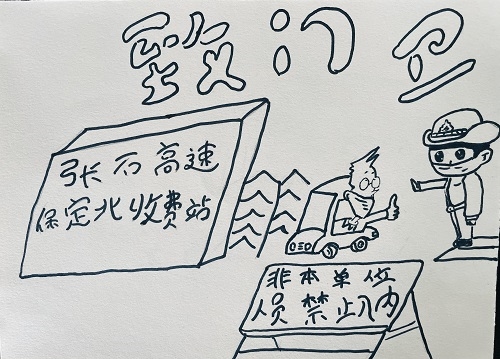 致门卫
张石高速
保定北收费站
非本单位
人员禁止入内